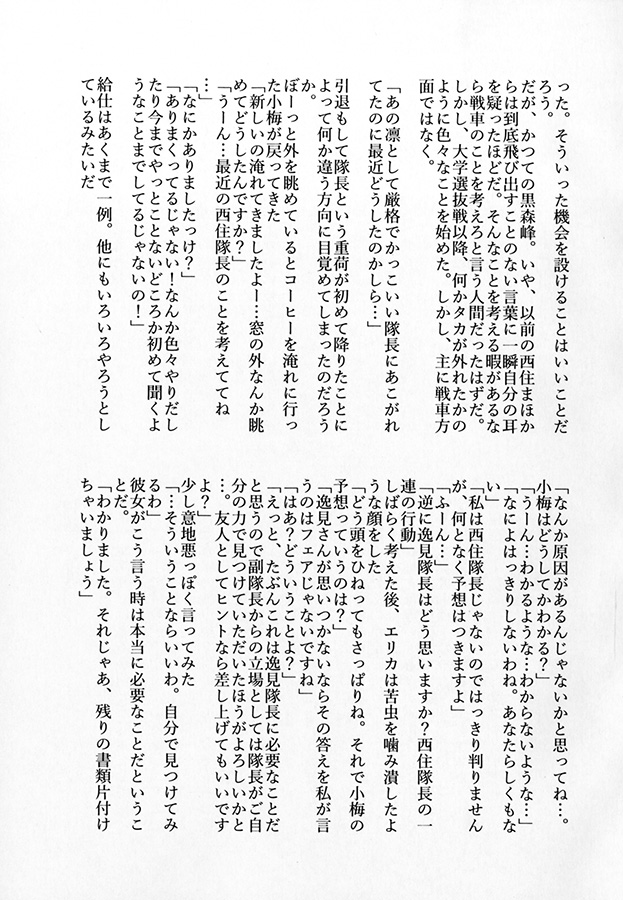 った。そういった機会を設けることはいいことだ
ろう。
だが、かつての黒森峰。いや、以前の西住まほか
らは到底飛び出すことのない言葉に一瞬自分の耳
を疑ったほどだ。そんなことを考える暇があるな
ら戦車のことを考えろと言う人間だったはずだ。
しかし、大学選抜戦以降、何かタカが外れたかの
ように色々なことを始めた。しかし、主に戦車方
面ではなく。
「あの凛として厳格でかっこいい隊長にあこがれ
てたのに最近どうしたのかしら…」
引退もして隊長という重荷が初めて降りたことに
よって何か違う方向に目覚めてしまったのだろう
か。
ぼーっと外を眺めているとコーヒーを淹れに行っ
た小梅が戻ってきた
「新しいの淹れてきましたよー…窓の外なんか眺
めてどうしたんですか？」
「うーん…最近の西住隊長のことを考えててね
…」
「なにかありましたっけ？」
「ありまくってるじゃない！なんか色々やりだし
たり今までやっとことないどころか初めて聞くよ
うなことまでしてるじゃないの！」
給仕はあくまで一例。他にもいろいろやろうとし
ているみたいだ
「なんか原因があるんじゃないかと思ってね…。
小梅はどうしてかわかる？」
「うーん…わかるような…わからないような…」
「なによはっきりしないわね。あなたらしくもな
い」
「私は西住隊長じゃないのではっきり判りません
が、何となく予想はつきますよ」
「ふーん…」
「逆に逸見隊長はどう思いますか？西住隊長の一
連の行動」
しばらく考えた後、エリカは苦虫を噛み潰したよ
うな顔をした
「どう頭をひねってもさっぱりね。それで小梅の
予想っていうのは？」
「逸見さんが思いつかないならその答えを私が言
うのはフェアじゃないですね」
「はあ？どういうことよ？」
「えっと、たぶんこれは逸見隊長に必要なことだ
と思うので副隊長からの立場としては隊長がご自
分の力で見つけていただいたほうがよろしいかと
…。友人としてヒントなら差し上げてもいいです
よ？」
少し意地悪っぽく言ってみた
「…そういうことならいいわ。自分で見つけてみ
るわ」
彼女がこう言う時は本当に必要なことだというこ
とだ。
「わかりました。それじゃあ、残りの書類片付け
ちゃいましょう」